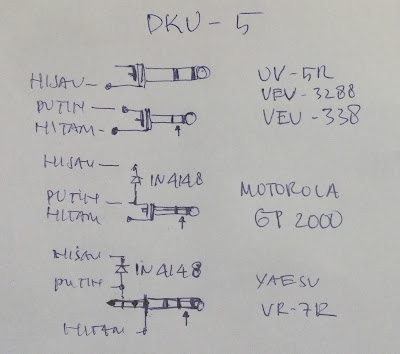 DKU-5
HIJAU
PUTIH
HITAM
UV-5R
VEV-3288
VEV-338
HIJAU
IN4148
PUTIH
HITAM
MOTOROLA
GP 2000
HIJAU
IN4148
PUTIH
HITAM
YAESU
VR-7R